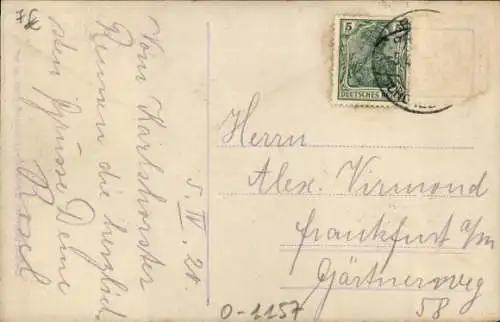 Vom Karlshorster
Rennen die herzlich-
sten Grüsse Deine
Rosel
5. IV. 20.
5
DEUTSCHES REICH
Herrn
Alex. Virmond
Frankfurt a/m
Gärtnerweg
58
0-1157